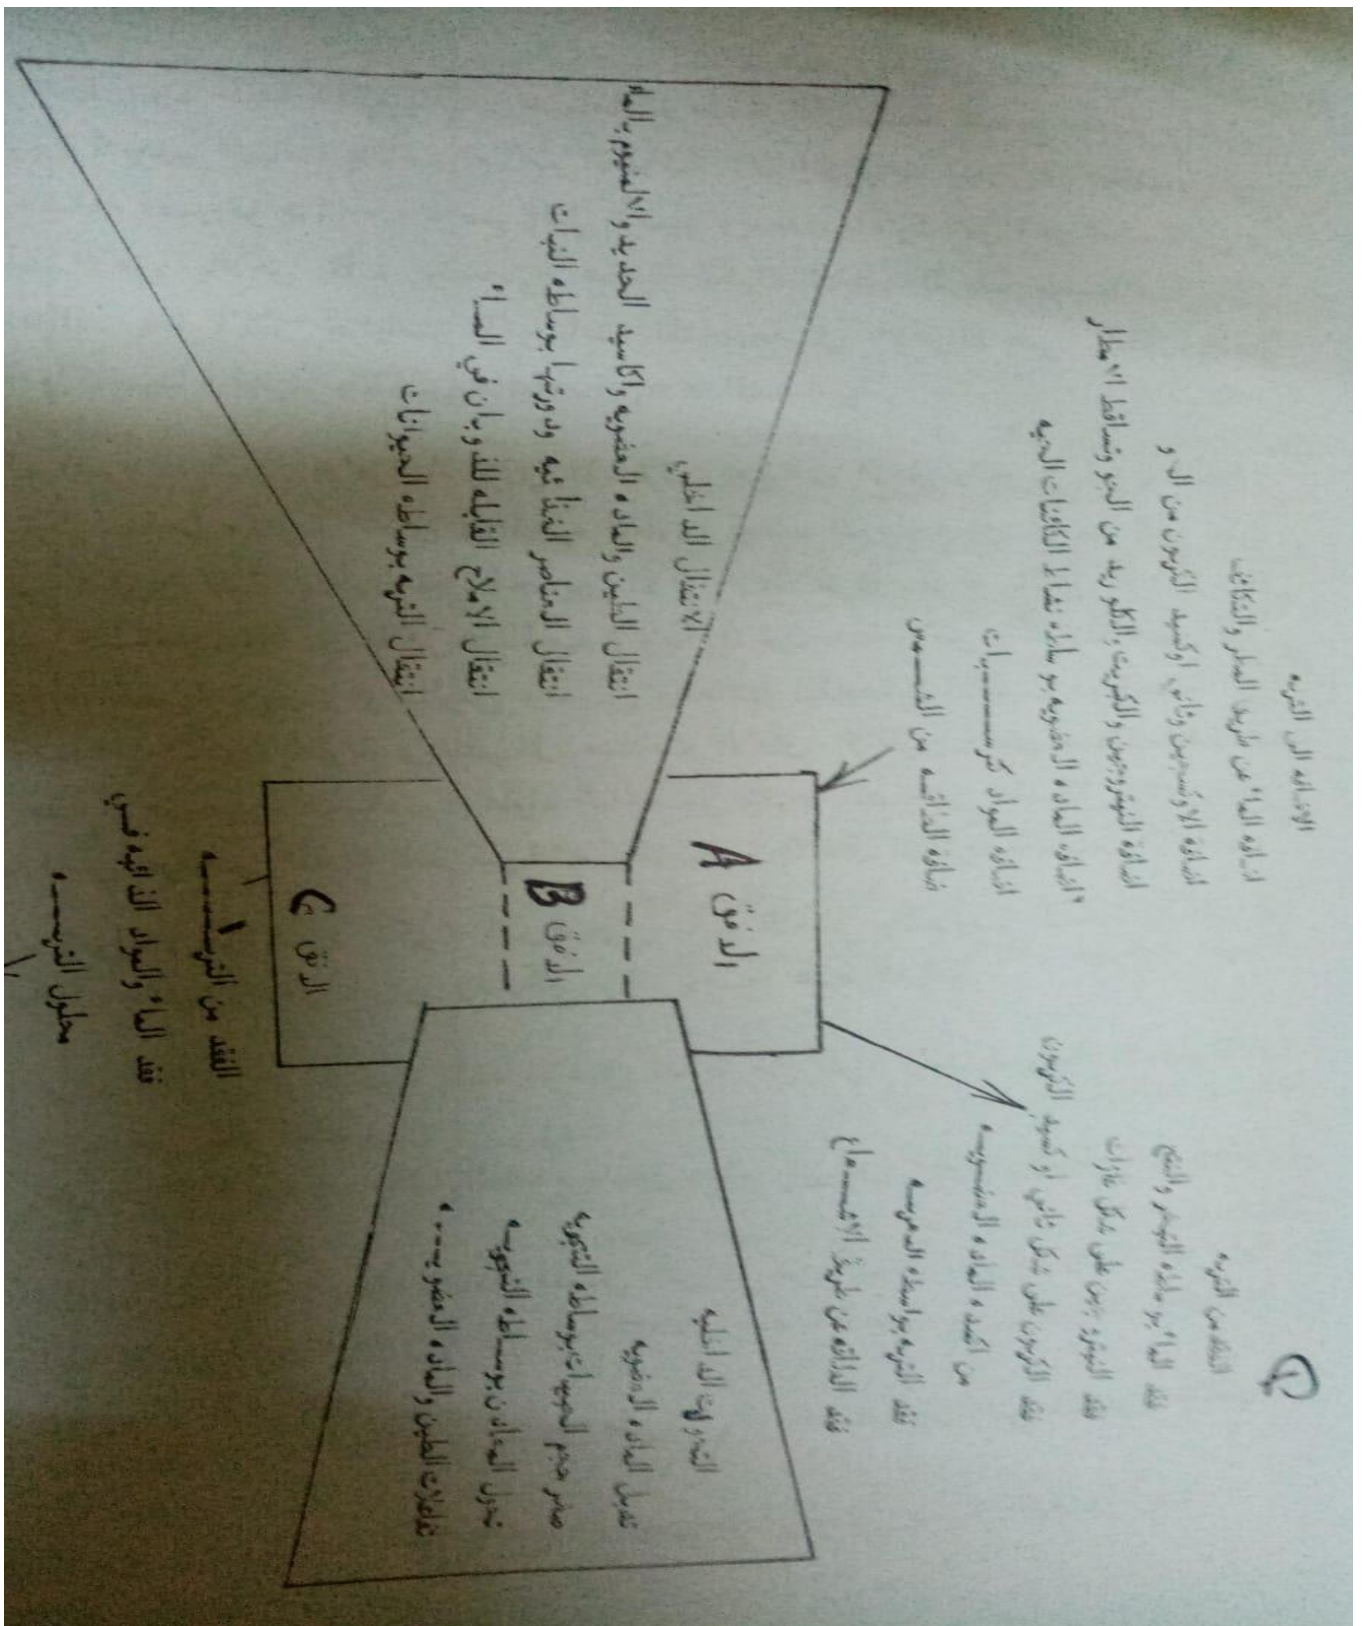 الاضافه الى التربه
اضافه الماء عن طريق المطر والتكاثف
اضافه الاوكسجين وثاني اوكسيد الكربون من الجو
اضافة النيتروجين والكبريت والكلوريد من الجو وتساقط الامطار
اضافه الماده العضويه بوساطه نشاط الكائنات الحيه
اضافه المواد كترسبات
اضافه الطاقه من الشمس
الفقد من التربه
فقد الماء بوساطه التبخر والنتح
فقد النيتروجين على شكل غازات
فقد الكربون على شكل ثاني اوكسيد الكربون
من اكسده الماده العضويه
فقد التربه بواسطه التعريه
فقد الطاقه عن طريق الاشعاع
الافق A
الافق B
الافق C
الانتقال الداخلي
انتقال الطين والماده العضويه واكاسيد الحديد والالمنيوم بالماء
انتقال العناصر الغذائيه ودورتها بوساطه النبات
انتقال الاملاح القابله للذوبان في الماء
انتقال التربه بوساطه الحيوانات
التحولات الداخليه
تحلل الماده العضويه
صغر حجم الحبيبات بوساطه التجويه
تحول المعادن بوساطه التجويه
تفاعلات الطين والماده العضويه
الفقد من التربه
فقد الماء والمواد الذائبه في
محلول التربه